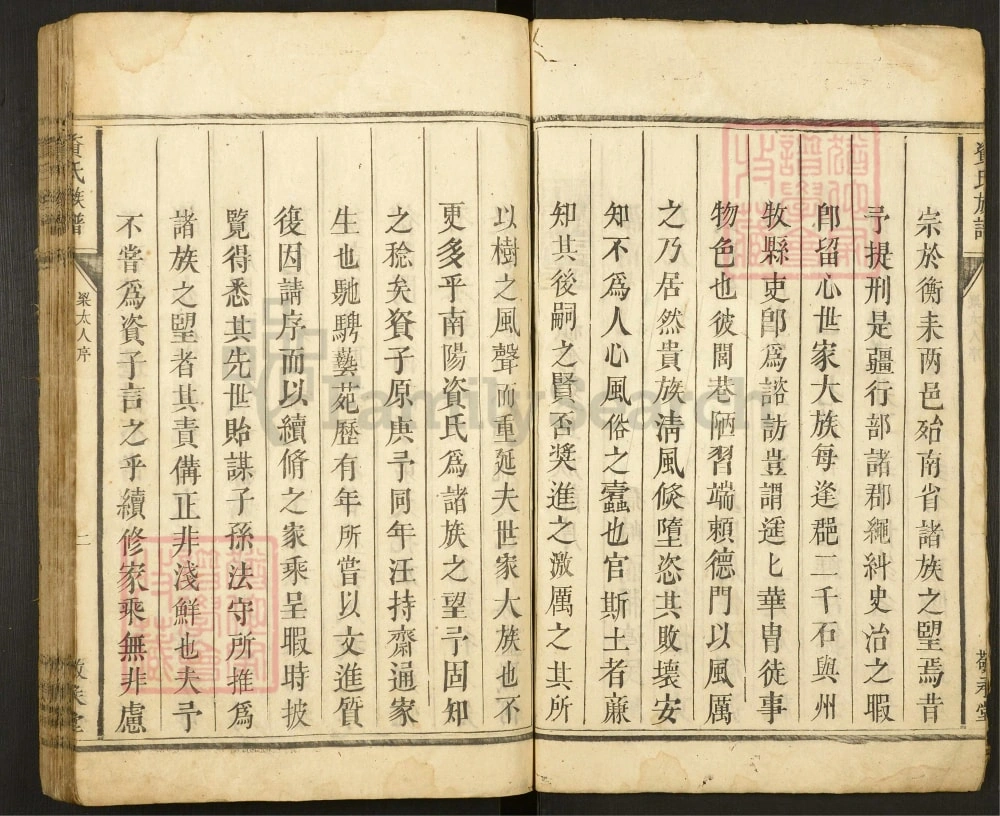 宗於衡耒两邑殆南省諸族之朢焉昔
予提刑是疆行部諸郡繩糾史治之暇
卽留心世家大族每逢郡二千石與州
牧縣吏卽爲諮訪豈謂逞匕華胄徒事
物色也彼閭巷陋習端頼德門以風厲
之乃居然貴族淸風倐墮恣其敗壞安
知不爲人心風俗之蠹也官斯土者廉
知其後嗣之賢否奬進之激厲之其所
以樹之風聲而重延夫世家大族也不
更多乎南陽資氏爲諸族之望予固知
之稔矣資子原庚予同年汪持齋通家
生也馳騁藝苑歷有年所嘗以文進質
復因請序而以續脩之家乘呈暇時披
覽得悉其先世貽謀子孫法守所推爲
諸族之朢者其責備正非淺鮮也夫予
不嘗爲資子言之乎續修家乘無非慮
資氏族譜
梁太人序
二
敬承堂
FamilySearch